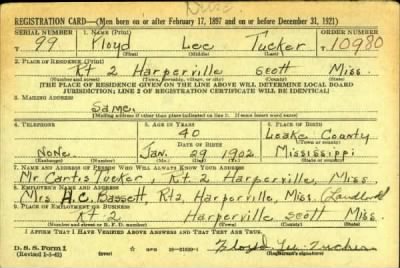 REGISTRATION CARD—(Men born on or after February 17, 1897 and on or before December 31, 1921)
SERIAL NUMBER 1. NAME (Print) ORDER NUMBER
T 99 Floyd Lee Tucker T 10980
(First) (Middle) (Last)
2. PLACE OF RESIDENCE (Print)
Rt 2 Harperville Scott Miss.
(Number and street) (Town, township, village, or city) (County) (State)
[THE PLACE OF RESIDENCE GIVEN ON THE LINE ABOVE WILL DETERMINE LOCAL BOARD
JURISDICTION; LINE 2 OF REGISTRATION CERTIFICATE WILL BE IDENTICAL]
3. MAILING ADDRESS
Same.
[Mailing address if other than place indicated on line 2. If same insert word same]
4. TELEPHONE 5. AGE IN YEARS 6. PLACE OF BIRTH
40 Leake County
DATE OF BIRTH (Town or county)
None. Jan. 29 1902 Mississippi
(Exchange) (Number) (Mo.) (Day) (Yr.) (State or country)
7. NAME AND ADDRESS OF PERSON WHO WILL ALWAYS KNOW YOUR ADDRESS
Mr Curtis Tucker Rt. 2 Harperville, Miss.
8. EMPLOYER'S NAME AND ADDRESS
Mrs A.C. Bassett, Rt2, Harperville, Miss. (Landlord)
9. PLACE OF EMPLOYMENT OR BUSINESS
Rt. 2 Harperville Scott Miss.
(Number and street or R. F. D. number) (Town) (County) (State)
I AFFIRM THAT I HAVE VERIFIED ABOVE ANSWERS AND THAT THEY ARE TRUE.
D. S. S. Form 1
(Revised 1-1-42) (over) (Registrant's signature)
Floyd Lee Tucker